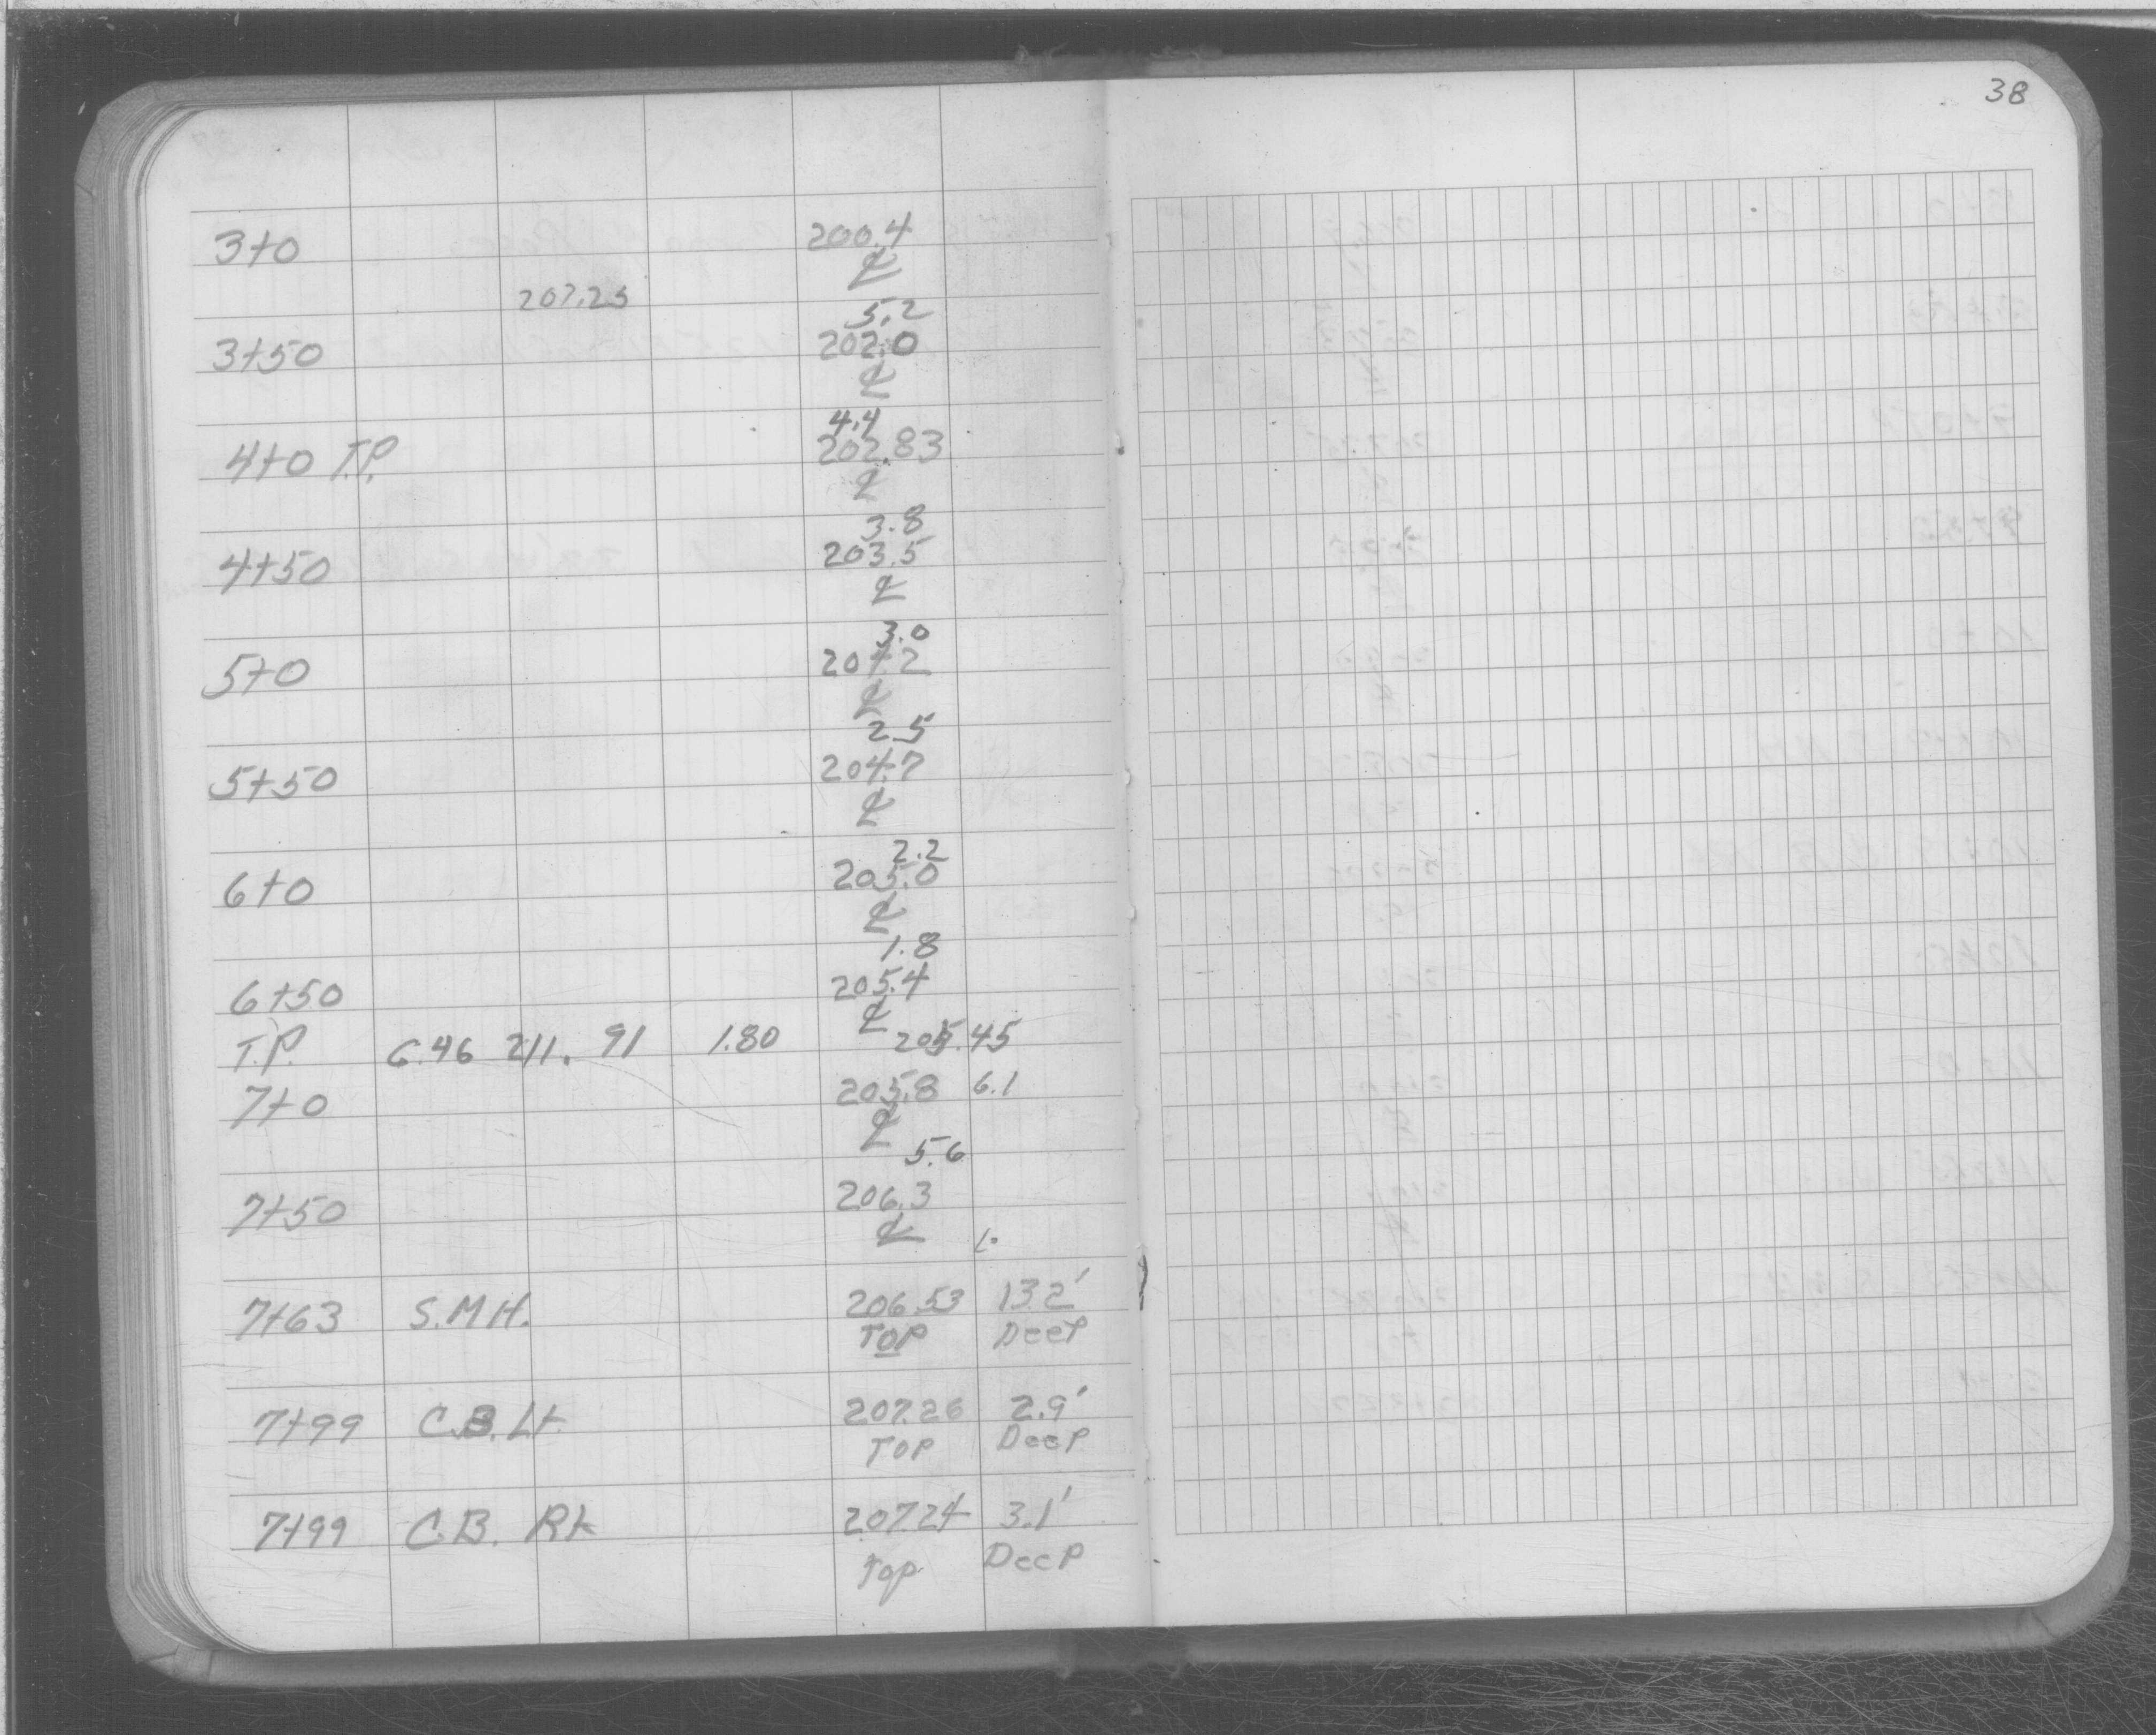 38
3+0 200.4
℄
207.25 5.2
3+50 202.0
℄
4.4
4+0 T.P. 202.83
℄
3.8
4+50 203.5
℄
3.0
5+0 204.2
℄
2.5
5+50 204.7
℄
2.2
6+0 205.0
℄
1.8
6+50 205.4
℄
T.P. 6.46 211.91 1.80 205.45
7+0 205.8 6.1
℄
5.6
7+50 206.3
℄
7+63 S.M.H. 206.53 13.2'
TOP Deep
7+99 C.B. Lt. 207.26 2.9'
Top Deep
7+99 C.B. Rt 207.24 3.1'
Top Deep